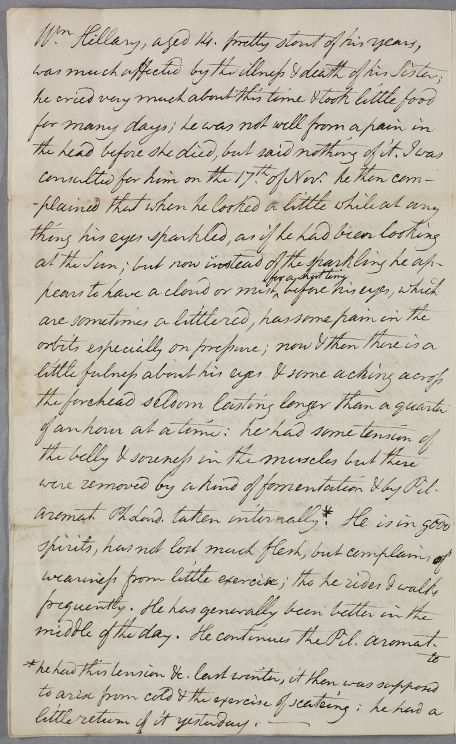 Wm Hillary, aged 14. pretty stout of his years,
was much affected by the illness & death of his Sister;
he cried very much about this time & took little food
for many days; he was not well from a pain in
the head before she died, but said nothing of it. I was
consulted for him on the 17th. of Novr. he then com-
-plained that when he looked a little while at any
thing his eyes sparkled, as if he had been looking
at the Sun; but now instead of the sparkling he ap-
for a short time
pears to have a cloud or mist ^ before his eyes, which
are sometimes a little red, has some pain in the
orbits especially on pressure; now & then there is a
little fulness about his eyes & some aching across
the forehead seldom lasting longer than a quarter
of an hour at a time: he had some tension of
the belly & soreness in the muscles but these
were removed by a kind of fomentation & by Pil.
aromat. Ph. Lond. taken internally.* He is in good
spirits, has not lost much flesh, but complains of
weariness from little exercise; tho he rides & walks
frequently. He has generally been better in the
middle of the day. He continues the Pil. aromat.
to
*he had this tension &c. last winter, it then was supposed
to arise from cold & the exercise of scateing: he had a
little return of it yesterday. —